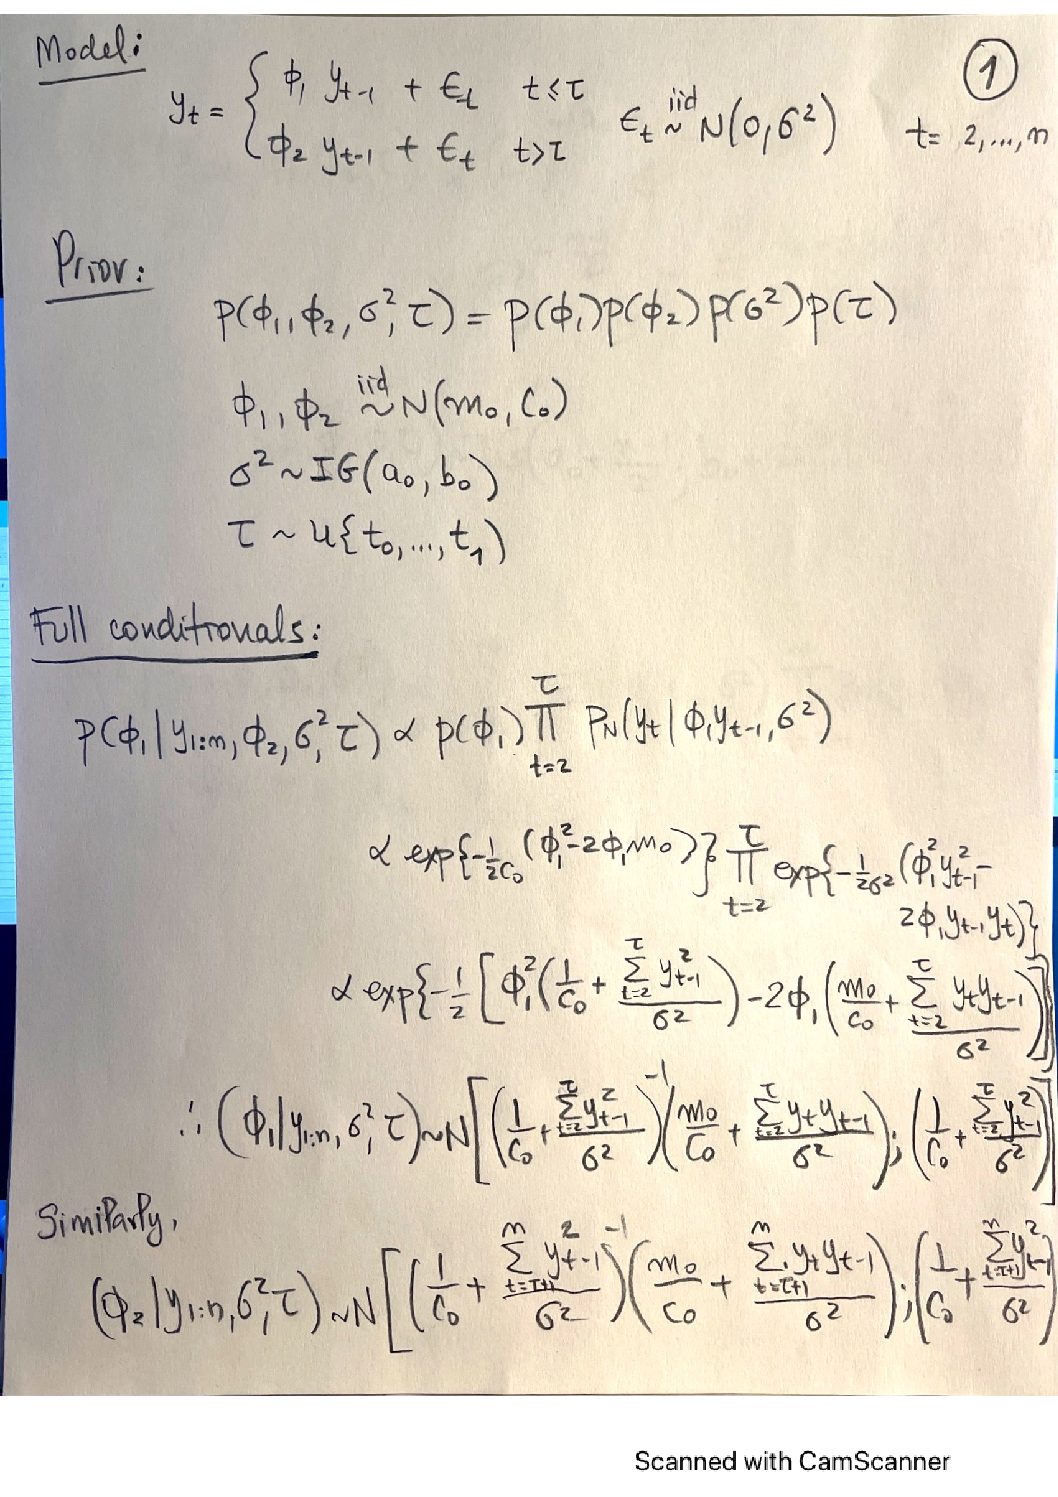 Model:
①
y_t = { φ₁ y_{t-1} + ε_t   t ≤ τ
φ₂ y_{t-1} + ε_t   t > τ
ε_t iid ~ N(0, σ²)   t = 2, ..., n
Prior:
p(φ₁, φ₂, σ², τ) = p(φ₁) p(φ₂) p(σ²) p(τ)
φ₁, φ₂ iid ~ N(m₀, C₀)
σ² ~ IG(a₀, b₀)
τ ~ U{t₀, ..., t₁)
Full conditionals:
p(φ₁ | y_{1:n}, φ₂, σ², τ) ∝ p(φ₁) ∏_{t=2}^{τ} p_N(y_t | φ₁ y_{t-1}, σ²)
∝ exp{-1/2C₀ (φ₁² - 2φ₁m₀)} ∏_{t=2}^{τ} exp{-1/2σ² (φ₁² y²_{t-1} -
2φ₁ y_{t-1} y_t)}
∝ exp{-1/2 [φ₁² (1/C₀ + ∑_{t=2}^{τ} y²_{t-1} / σ²) - 2φ₁ (m₀/C₀ + ∑_{t=2}^{τ} y_t y_{t-1} / σ²)]}
∴ (φ₁ | y_{1:n}, σ², τ) ~ N[(1/C₀ + ∑_{t=2}^{τ} y²_{t-1} / σ²)^{-1} (m₀/C₀ + ∑_{t=2}^{τ} y_t y_{t-1} / σ²); (1/C₀ + ∑_{t=2}^{τ} y²_{t-1} / σ²)]
Similarly,
(φ₂ | y_{1:n}, σ², τ) ~ N[(1/C₀ + ∑_{t=τ+1}^{n} y²_{t-1} / σ²)^{-1} (m₀/C₀ + ∑_{t=τ+1}^{n} y_t y_{t-1} / σ²); (1/C₀ + ∑_{t=τ+1}^{n} y²_{t-1} / σ²)
Scanned with CamScanner